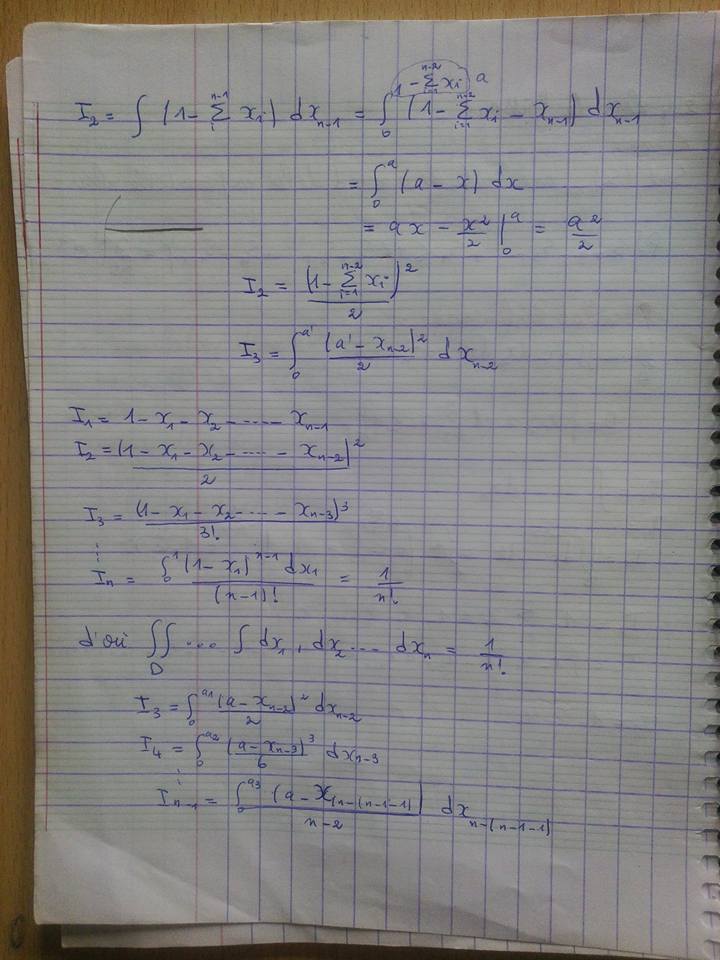 I₂ = ∫ (1 - Σ_{i}^{n-1} xᵢ) dx_{n-1} = ∫_0^{1 - Σ_{i=1}^{n-2} xᵢ} a (1 - Σ_{i=1}^{n-2} xᵢ - x_{n-1}) dx_{n-1}
= ∫_0^a (a - x) dx
= ax - x²/2 |_0^a = a²/2
I₂ = (1 - Σ_{i=1}^{n-2} xᵢ)² / 2
I₃ = ∫_0^{a'} (a' - x_{n-2})² / 2 dx_{n-2}
I₁ = 1 - x₁ - x₂ - ---- - x_{n-1}
I₂ = (1 - x₁ - x₂ - ---- - x_{n-2})² / 2
I₃ = (1 - x₁ - x₂ - ---- - x_{n-3})³ / 3!
⋮
Iₙ = ∫_0^1 (1 - x₁)^{n-1} dx₁ / (n-1)! = 1/n!
d'où ∫∫_D ... ∫ dx₁, dx₂ ... dxₙ = 1/n!
I₃ = ∫_0^{a1} (a - x_{n-2})² / 2 dx_{n-2}
I₄ = ∫_0^{a2} (a - x_{n-3})³ / 6 dx_{n-3}
⋮
I_{n-1} = ∫_0^{a3} (a - x_{(n-(n-1-1)}) / n-2 dx_{n-(n-1-1)}